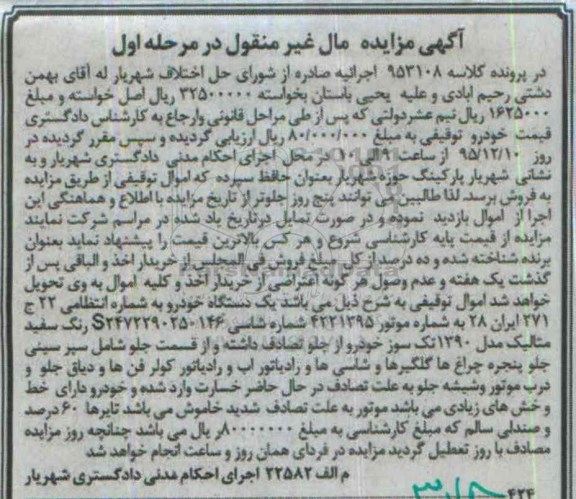 آگهی مزایده مال غیر منقول در مرحله اول
در پرونده کلاسه ۹۵۳۱۰۸ اجرائیه صادره از شورای حل اختلاف شهریار له آقای بهمن
دشتی رحیم ابادی و علیه یحیی باستان بخواسته ۳۲۵۰۰۰۰۰ ریال اصل خواسته و مبلغ
۱۶۲۵۰۰۰ ریال نیم عشردولتی که پس از طی مراحل قانونی وارجاع به کارشناس دادگستری
قیمت خودرو توقیفی به مبلغ ۸۰/۰۰۰/۰۰۰ ریال ارزیابی گردیده و سپس مقرر گردیده در
روز ۹۵/۱۲/۱۰ از ساعت ۹ الی ۱۰ در محل اجرای احکام مدنی دادگستری شهریار و به
نشانی شهریار پارکینگ حوزه شهریار بعنوان حافظ سپرده که اموال توقیفی از طریق مزایده
به فروش برسد. لذا طالبین می توانند پنج روز جلوتر از تاریخ مزایده با اطلاع و هماهنگی این
اجرا از اموال بازدید نموده و در صورت تمایل درتاریخ یاد شده در مراسم شرکت نمایند
مزایده از قیمت پایه کارشناسی شروع و هر کس بالاترین قیمت را پیشنهاد نماید بعنوان
برنده شناخته شده و ده درصد از کل مبلغ فروش فی المجلس از خریدار اخذ و الباقی پس از
گذشت یک هفته و عدم وصول هر گونه اعتراضی از خریدار اخذ و کلیه اموال به وی تحویل
خواهد شد اموال توقیفی به شرح ذیل می باشد یک دستگاه خودرو به شماره انتظامی ۲۲ ج
۲۷۱ ایران ۲۸ به شماره موتور ۴۲۲۱۳۹۵ شماره شاسی S۲۴۷۲۲۹۰۲۵۰۱۴۶ رنگ سفید
متالیک مدل ۱۳۹۰ تک سوز خودرو از جلو تصادف داشته و از قسمت جلو شامل سپر سینی
جلو پنجره چراغ ها گلگیرها و شاسی ها و رادیاتور اب و رادیاتور کولر فن ها و دیاق جلو و
درب موتور وشیشه جلو به علت تصادف در حال حاضر خسارت وارد شده و خودرو دارای خط
و خش های زیادی می باشد موتور به علت تصادف شدید خاموش می باشد تایرها ۶۰ درصد
و صندلی سالم که مبلغ کارشناسی به مبلغ ۸۰۰۰۰۰۰۰ ریال می باشد چنانچه روز مزایده
مصادف با روز تعطیل گردید مزایده در فردای همان روز و ساعت انجام خواهد شد
م الف ۲۲۵۸۲ اجرای احکام مدنی دادگستری شهریار
۴۲۴